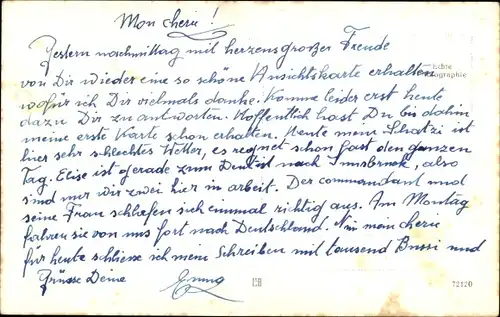 Mon cheri!
Gestern nachmittag mit herzensgroßer Freude
Echte
von Dir wieder eine so schöne Ansichtskarte erhalten
wofür ich Dir vielmals danke. Komme leider erst heute
dazu Dir zu antworten. Hoffentlich hast Du bis dahin
meine erste Karte schon erhalten. Heute mein Schatzi ist
hier sehr schlechtes Wetter, es regnet schon fast den ganzen
Tag. Elise ist gerade zum Dentist nach Innsbruck, also
sind nur wir zwei hier in arbeit. Der commandant und
seine Frau schlafen sich einmal richtig aus. Am Montag
fahren sie von uns fort nach Deutschland. Nun mon cheri
für heute schliesse ich mein Schreiben mit tausend Bussi und
Grüsse Deine
72120